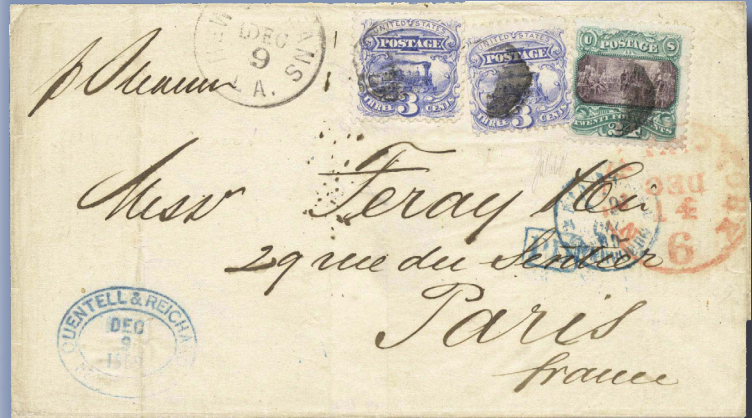 DEC
9
LA.
UNITED STATES
POSTAGE
THREE 3 CENTS
UNITED STATES
POSTAGE
THREE 3 CENTS
U POSTAGE S
TWENTY FOUR CENTS
p Steamer
Mess Feray & Cie
29 rue du Sentier
Paris
france
DEC
14
6
QUENTELL & REICHA
DEC
9